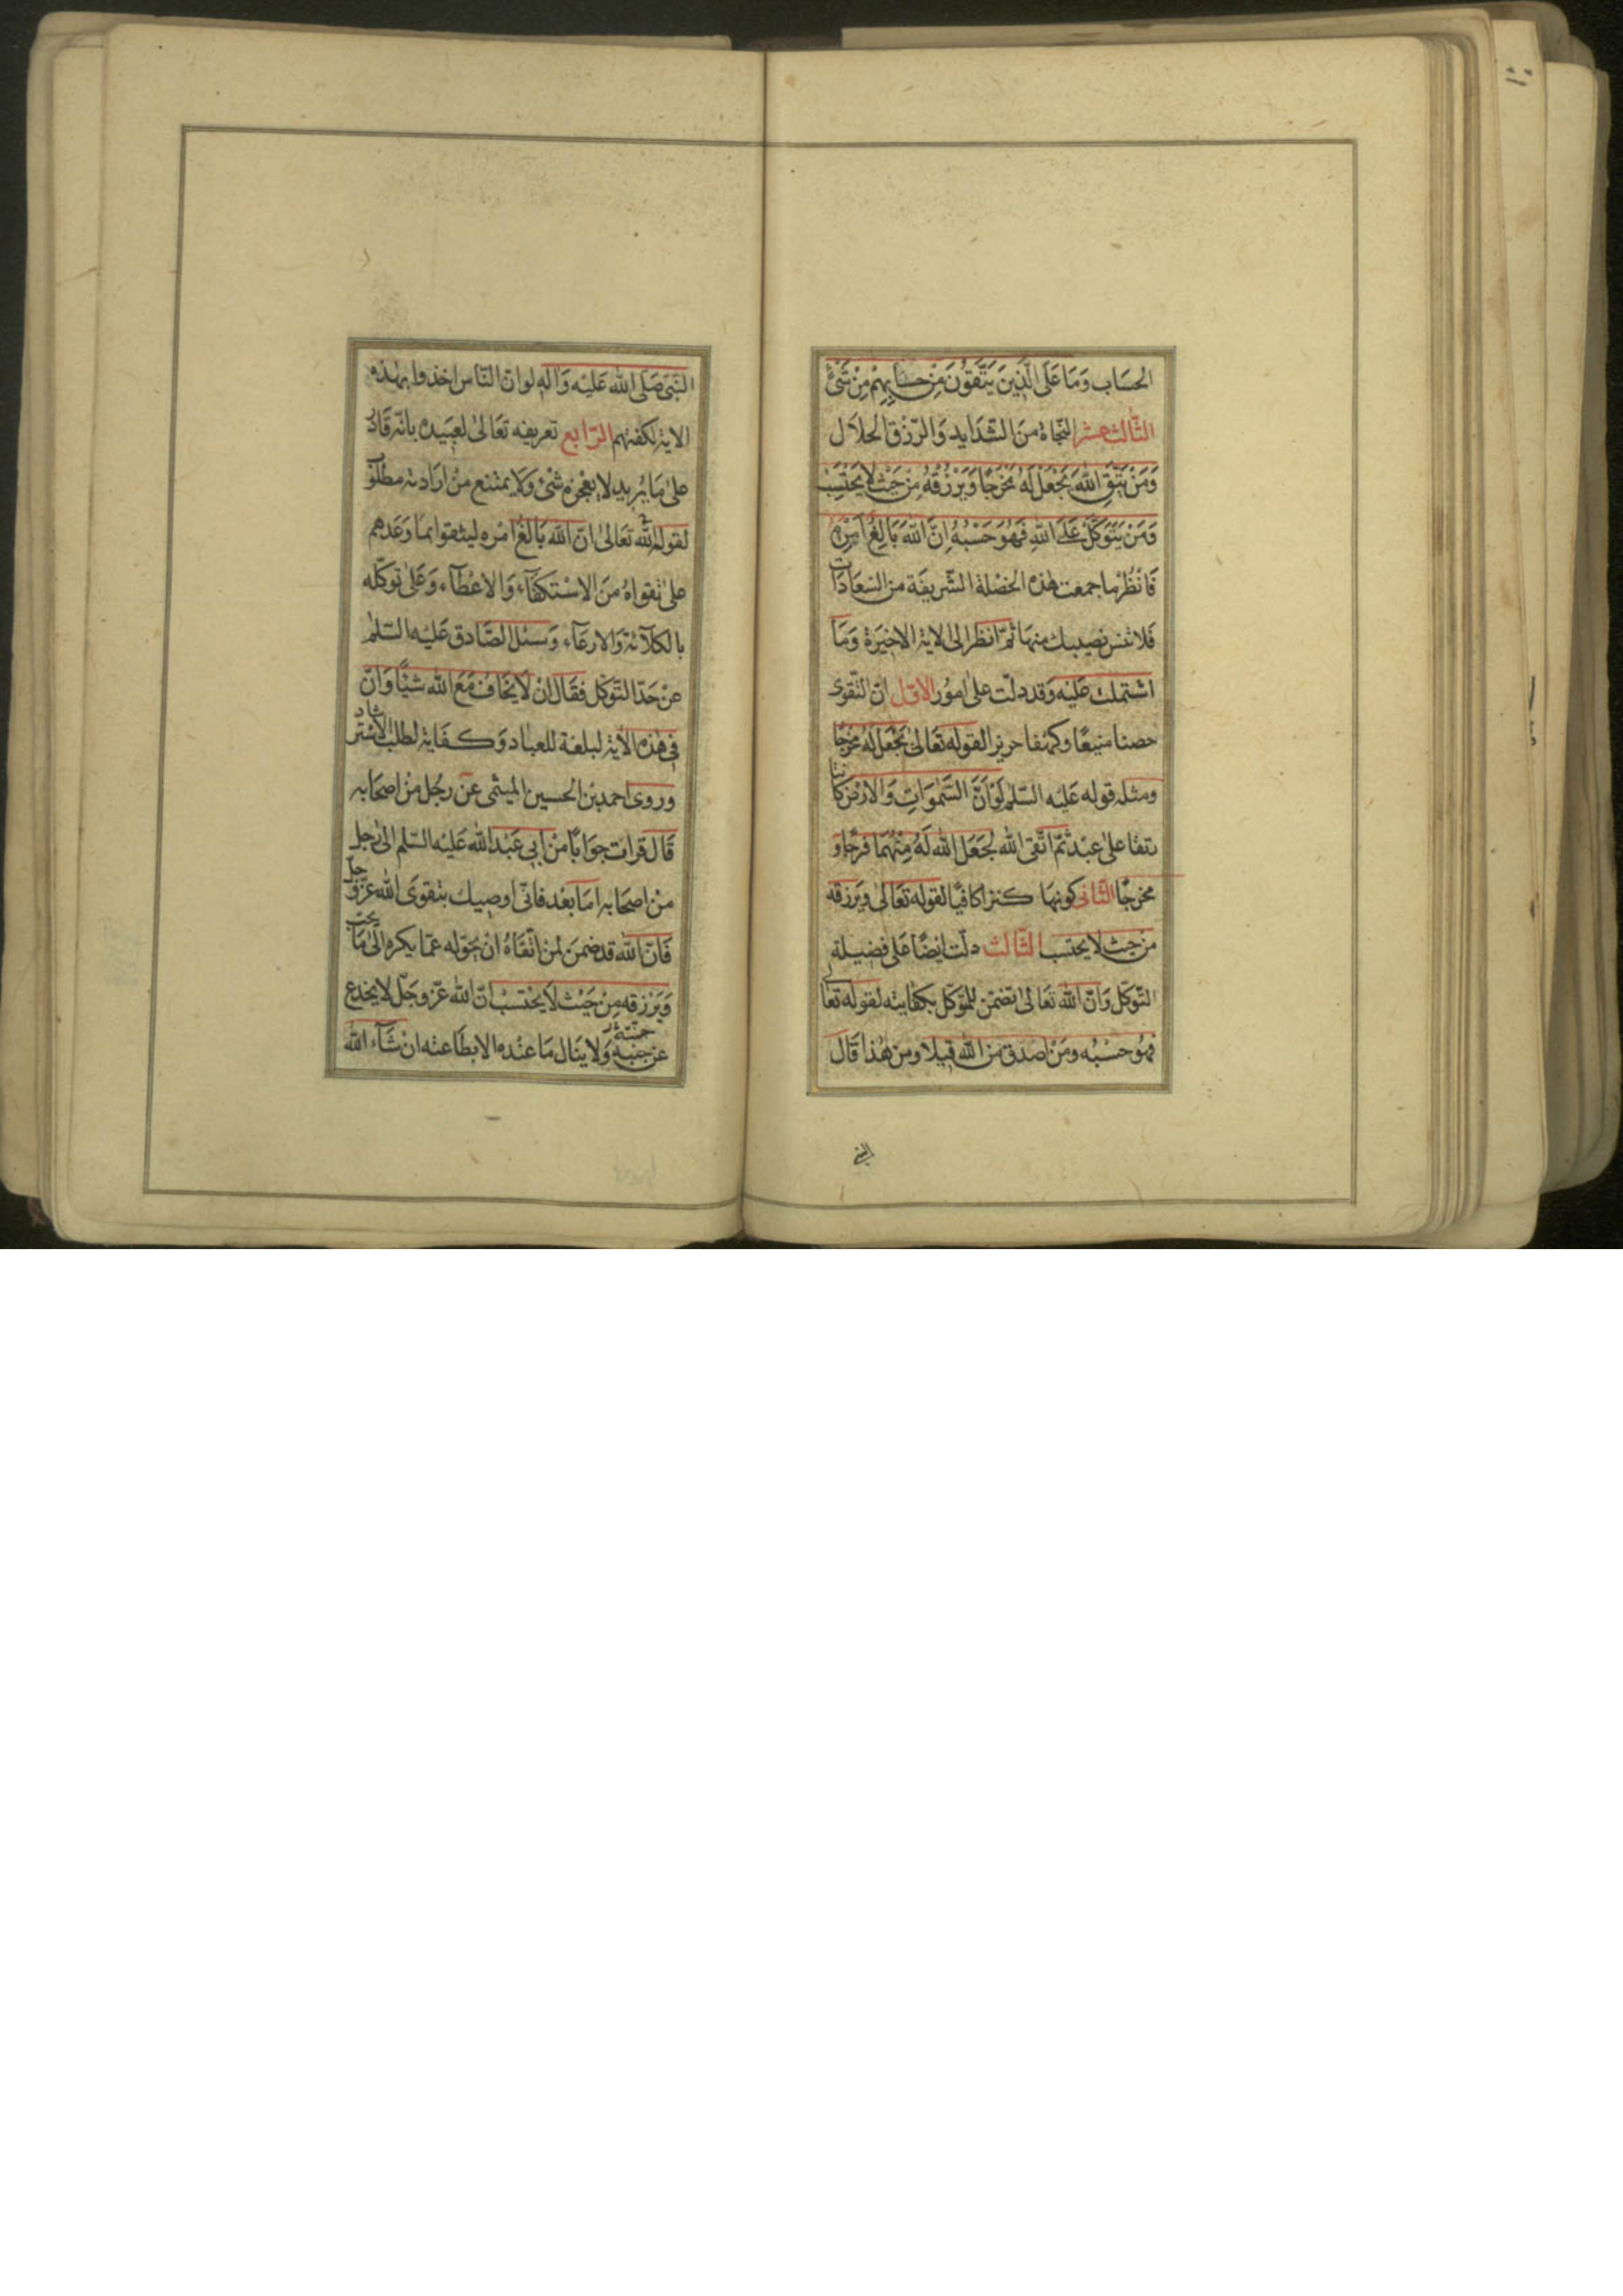 الحسَاب وَمَا عَلَى الَّذِينَ يَتَّقوُنَ مِنْ حِسَابِهِمْ مِنْ شَئْ
الثّالث عشر النّجاة منَ الشّدَايد وَالرّزق الحلاَل
وَمَنْ يَتَّقِ اللّٰهَ يَجْعَلْ لَهُ مَخْرَجًا وَيَرْزُقْهُ مِنْ حَيْثُ لاَ يَحْتَسِبُ
وَمَنْ يَتَوَكَّلْ عَلَى اللّٰهِ فَهُوَ حَسْبُهُ اِنَّ اللّٰهَ بَالِغُ اَمْرِهِ
فَانْظُرْ ما جمعت هٰذه الخصْلة الشّريفَة من السّعَادَات
فَلا تنس نصيبك منهَا ثمّ انظر الى الاية الاخيَرة وَمَا
اشتملت عَليْه وَقد دلّت على امُور الاوّل انّ التّقوى
حصنا منيعًا وكهفا حريزا لقوله تعَالىٰ يَجْعَلْ لَهُ مَخْرجًا
ومثله قوله عَليْه السّلم لَوْ اَنَّ السَّمٰوَاتِ وَالارْض كَانتا
رتقا على عبْد ثمّ اتّقى اللّه لجَعَل اللّه لَهُ مِنْهُمَا فرجًا وَ
مخرجًا الثّانى كونهَا كنزا كافيًا لقوله تعَالى وَيَرزقه
من حيث لا يحتسب الثّالث دلّت ايْضًا عَلى فضيلة
التّوكّل وَانّ اللّه تعَالى تضمّن للمتوكّل بكفايته لقوله تعَالى
فهوُ حسْبُه ومَنْ اصْدق من اللّه قيلا ومن هٰذا قَال
النّبى
النّبّى صَلّى اللّه عَليْه وَاٰله لو انّ النّاس اخذوا بهٰذه
الاية لكفتهم الرّابع تعريفه تعَالىٰ لعبيده بانّه قَادر
علىٰ مَا يُريد لا يعْجزه شئ وَلا يمتنع منْ ارَادته مطلُوب
لقوله تعَالىٰ انّ اللّه بَالغُ امْره ليثقوا بمَا وَعَدهم
على تقواهُ منَ الاسْتكفَاء وَالاعْطَاء وَعَلى توكّله
بالكلآئة وَالارعَاء وَسئل الصّادق عَليْه السّلم
عنْ حَدّ التّوكّل فقَال انْ لاَ يخَاف مَعَ اللّه شيْئًا وَانّ
فى هٰذه الاٰية لبلغة للعبَاد وَكفَاية لطلب الاسْترشاد
وروى احمد بْن الحسين الميثمى عنْ رجُل منْ اصحَابه
قَال قرات جوَابًا منْ ابى عَبْد اللّه عَليْه السّلم الى رَجل
منْ اصحَابه امَا بعْد فانّى اوصيك بتقوَى اللّه عزّ وَجلّ
فَانّ اللّه قد ضمنَ لمن اتّقَاهُ انْ يحوّله عمّا يكره الىٰ مَا يحبّ
وَيَرْزقه مِنْ حَيْث لاَ يحْتسبْ انّ اللّه عَزّ وجَلّ لا يخدع
عن جنّته وَلا ينَال مَا عنْده الا بطَاعته انْ شَآء اللّه